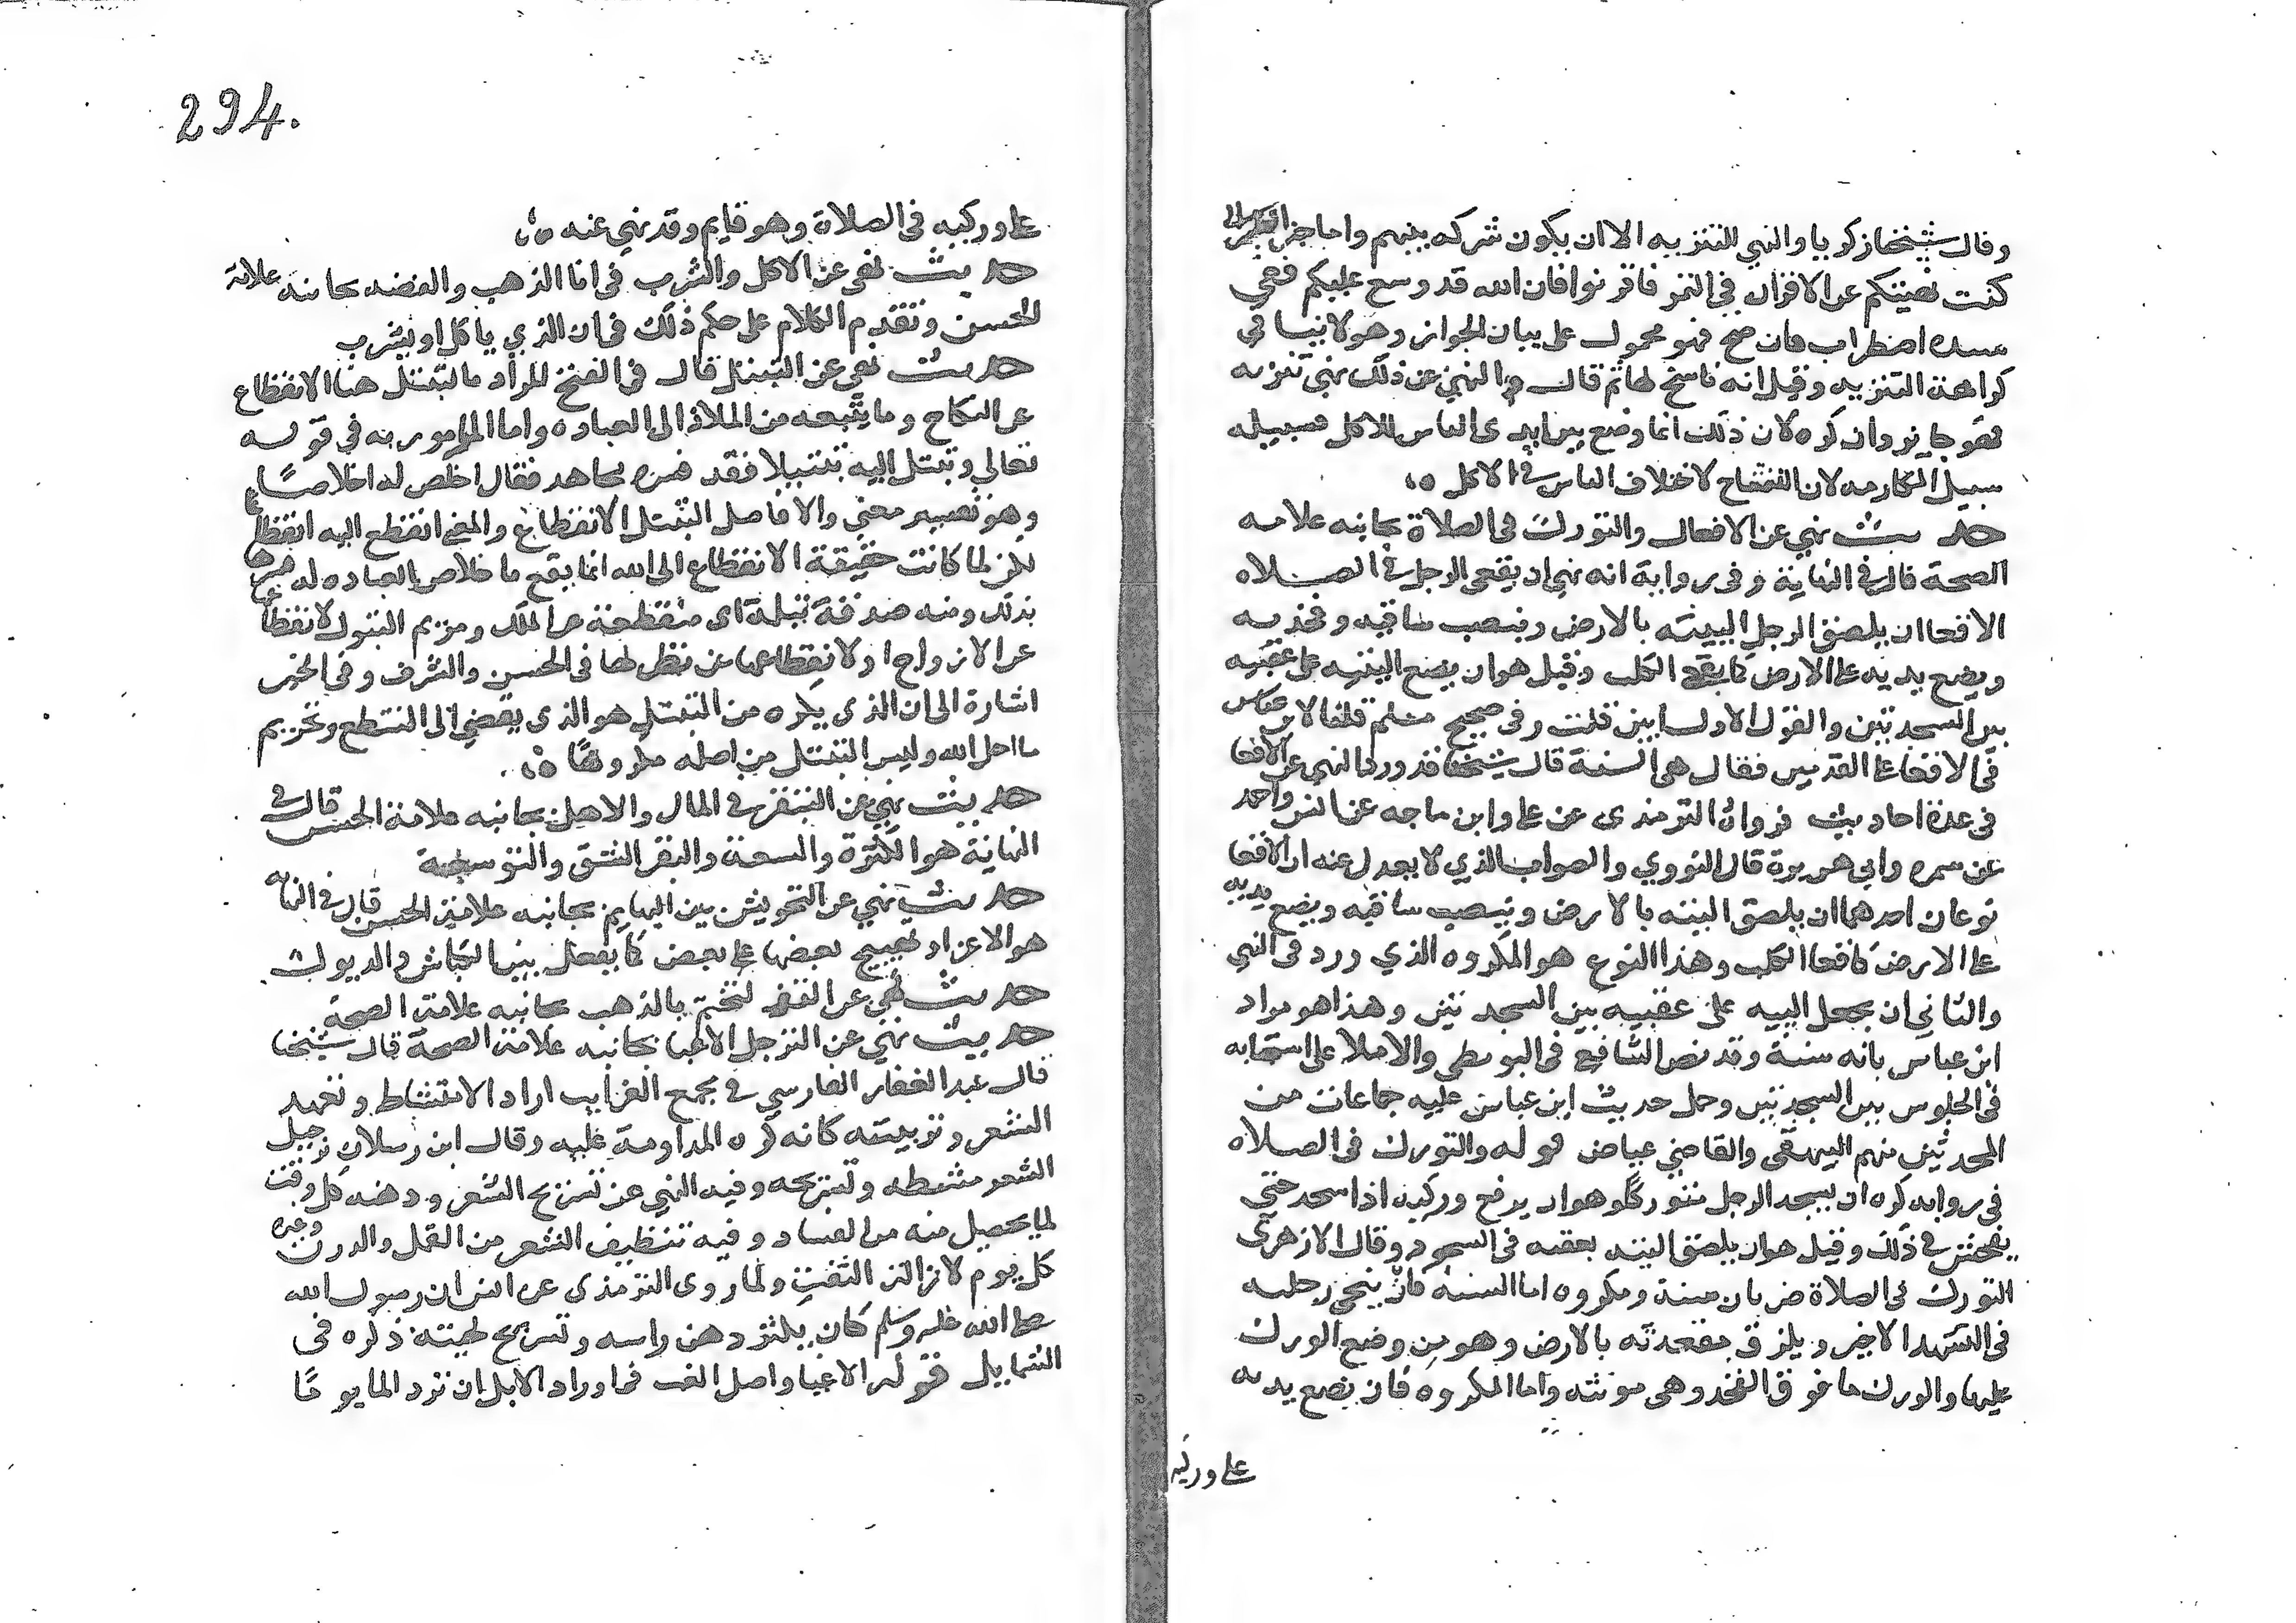 وقال شيخنا زكريا والنهي للتنزيه الا ان يكون شركه بينهم واما خبر الطبراني
كنت نهيتكم عن الاقران في التمر فاقرنوا فان الله قد وسع عليكم ففي
سنده اضطراب فان صح فهو محمول على بيان الجواز وهو لا ينافي
كراهة التنزيه وقيل انه ناسخ لها ثم قال والنهي عن ذلك نهي تنزيه
فهو جايز وان كره لان ذلك انما وضع بين ايدى الناس للاكل فسبيله
سبيل المكارمه لا الاختلاف الناس في الاكل ٥
حديث نهي عن الاقعاء والتورك في الصلاة بجانبه علامه
الصحة قال في النهاية وفي رواية انه نهي ان يقعى الرجل في الصلاه
الاقعا ان يلصق الرجل اليتيه بالارض وينصب ساقيه وفخذيه
ويضع يديه على الارض كما يقعى الكلب وقيل هو ان يضع اليتيه على عقبيه
بين السجدتين والقول الاول ابين قلت وفي صحيح مسلم قلنا لابن عباس
في الاقعا على القدمين فقال هي السنة قال شيخنا قد ورد النهي عن الاقعا
في عدة احاديث فرواه الترمذى عن على وابن ماجه عن انس واحمد
عن سمره وابي هريرة قال النووي والصواب الذي لا يعدل عنه ان الاقعا
نوعان احدهما ان يلصق اليتيه بالارض وينصب ساقيه ويضع يديه
على الارض كاقعا الكلب وهذا النوع هو المكروه الذي ورد فى النهي
والثاني ان يجعل اليتيه على عقبيه بين السجدتين وهذا هو مراد
ابن عباس بانه سنة وقد نص الشافعي في البويطي والاملا على استحبابه
في الجلوس بين السجدتين وحمل حديث ابن عباس عليه جماعات من
المحدثين منهم البيهقى والقاضي عياض قوله والتورك في الصلاه
في روايه كره ان يسجد الرجل متوركا هو ان يرفع وركيه اذا سجد حتى
يفحش في ذلك وقيل هو ان يلصق اليتيه بعقبه في السجود وقال الازهرى
التورك في الصلاة ضربان سنة ومكروه اما السنة فان ينحي رجليه
في التشهد الاخير ويلزق مقعدته بالارض وهو من وضع الورك
عليها والورك ما فوق الفخذ وهى مونثه واما المكروه فان يضع يديه
على وركيه
294.
على وركيه في الصلاة وهو قايم وقد نهي عنه ٥
حديث نهى عن الاكل والشرب في انا الذهب والفضه بجانبه علامة
الحسن وتقدم الكلام على حكم ذلك في ان الذي ياكل او يشرب
حديث نهي عن التبتل قال في الفتح المراد بالتبتل هنا الانقطاع
عن النكاح وما يتبعه من الملاذ الى العباده واما المامور به في قوله
تعالى وتبتل اليه تبتيلا فقد فسره مجاهد فقال اخلص له اخلاصا
وهو تفسير معنى والا فاصل التبتل الانقطاع والمعنى انقطع اليه انقطاعا
لكن لما كانت حقيقة الانقطاع الى الله انما يقع باخلاص العباده له فسرها
بذلك ومنه صدقة بتلة اى منقطعة عن الملك ومريم البتول لانقطاعها
عن الازواج او لانقطاعها عن نظرايها في الحسن والشرف وفي الخبر
اشارة الى ان الذى يكره من التبتل هو الذى يفضي الى التنطع وتحريم
ما احل الله وليس التبتل من اصله مكروها ٥
حديث نهي عن التبقر في المال والاهل بجانبه علامة الحسن قال في
النهاية هو الكثرة والسعة والبقر الشق والتوسعة
حديث نهي عن التحريش بين البهايم بجانبه علامة الحسن قال في النهايه
هو الاغراء وتهييج بعضها على بعض كما يفعل بين الكباش والديوك
حديث نهي عن التختم بالذهب بجانبه علامة الصحة
حديث نهي عن الترجل الا غبا بجانبه علامة الصحة قال شيخنا
قال عبد الغافر الفارسي في مجمع الغرايب اراد الامتشاط وتعهد
الشعر وتربيته كانه كره المداومة عليه وقال ابن رسلان ترجيل
الشعر مشطه وتسريحه وفيه النهي عن تسريح الشعر ودهنه كل وقت
لما يحصل منه من الفساد وفيه تنظيف الشعر من القمل والدرن وغيره
كل يوم لازالة التفث ولما روى الترمذى عن انس ان رسول الله
صلى الله عليه وسلم كان يكثر دهن راسه وتسريح لحيته ذكره في
الشمايل قوله الا غبا واصل الغب في اوراد الابل ان ترد الما يوما